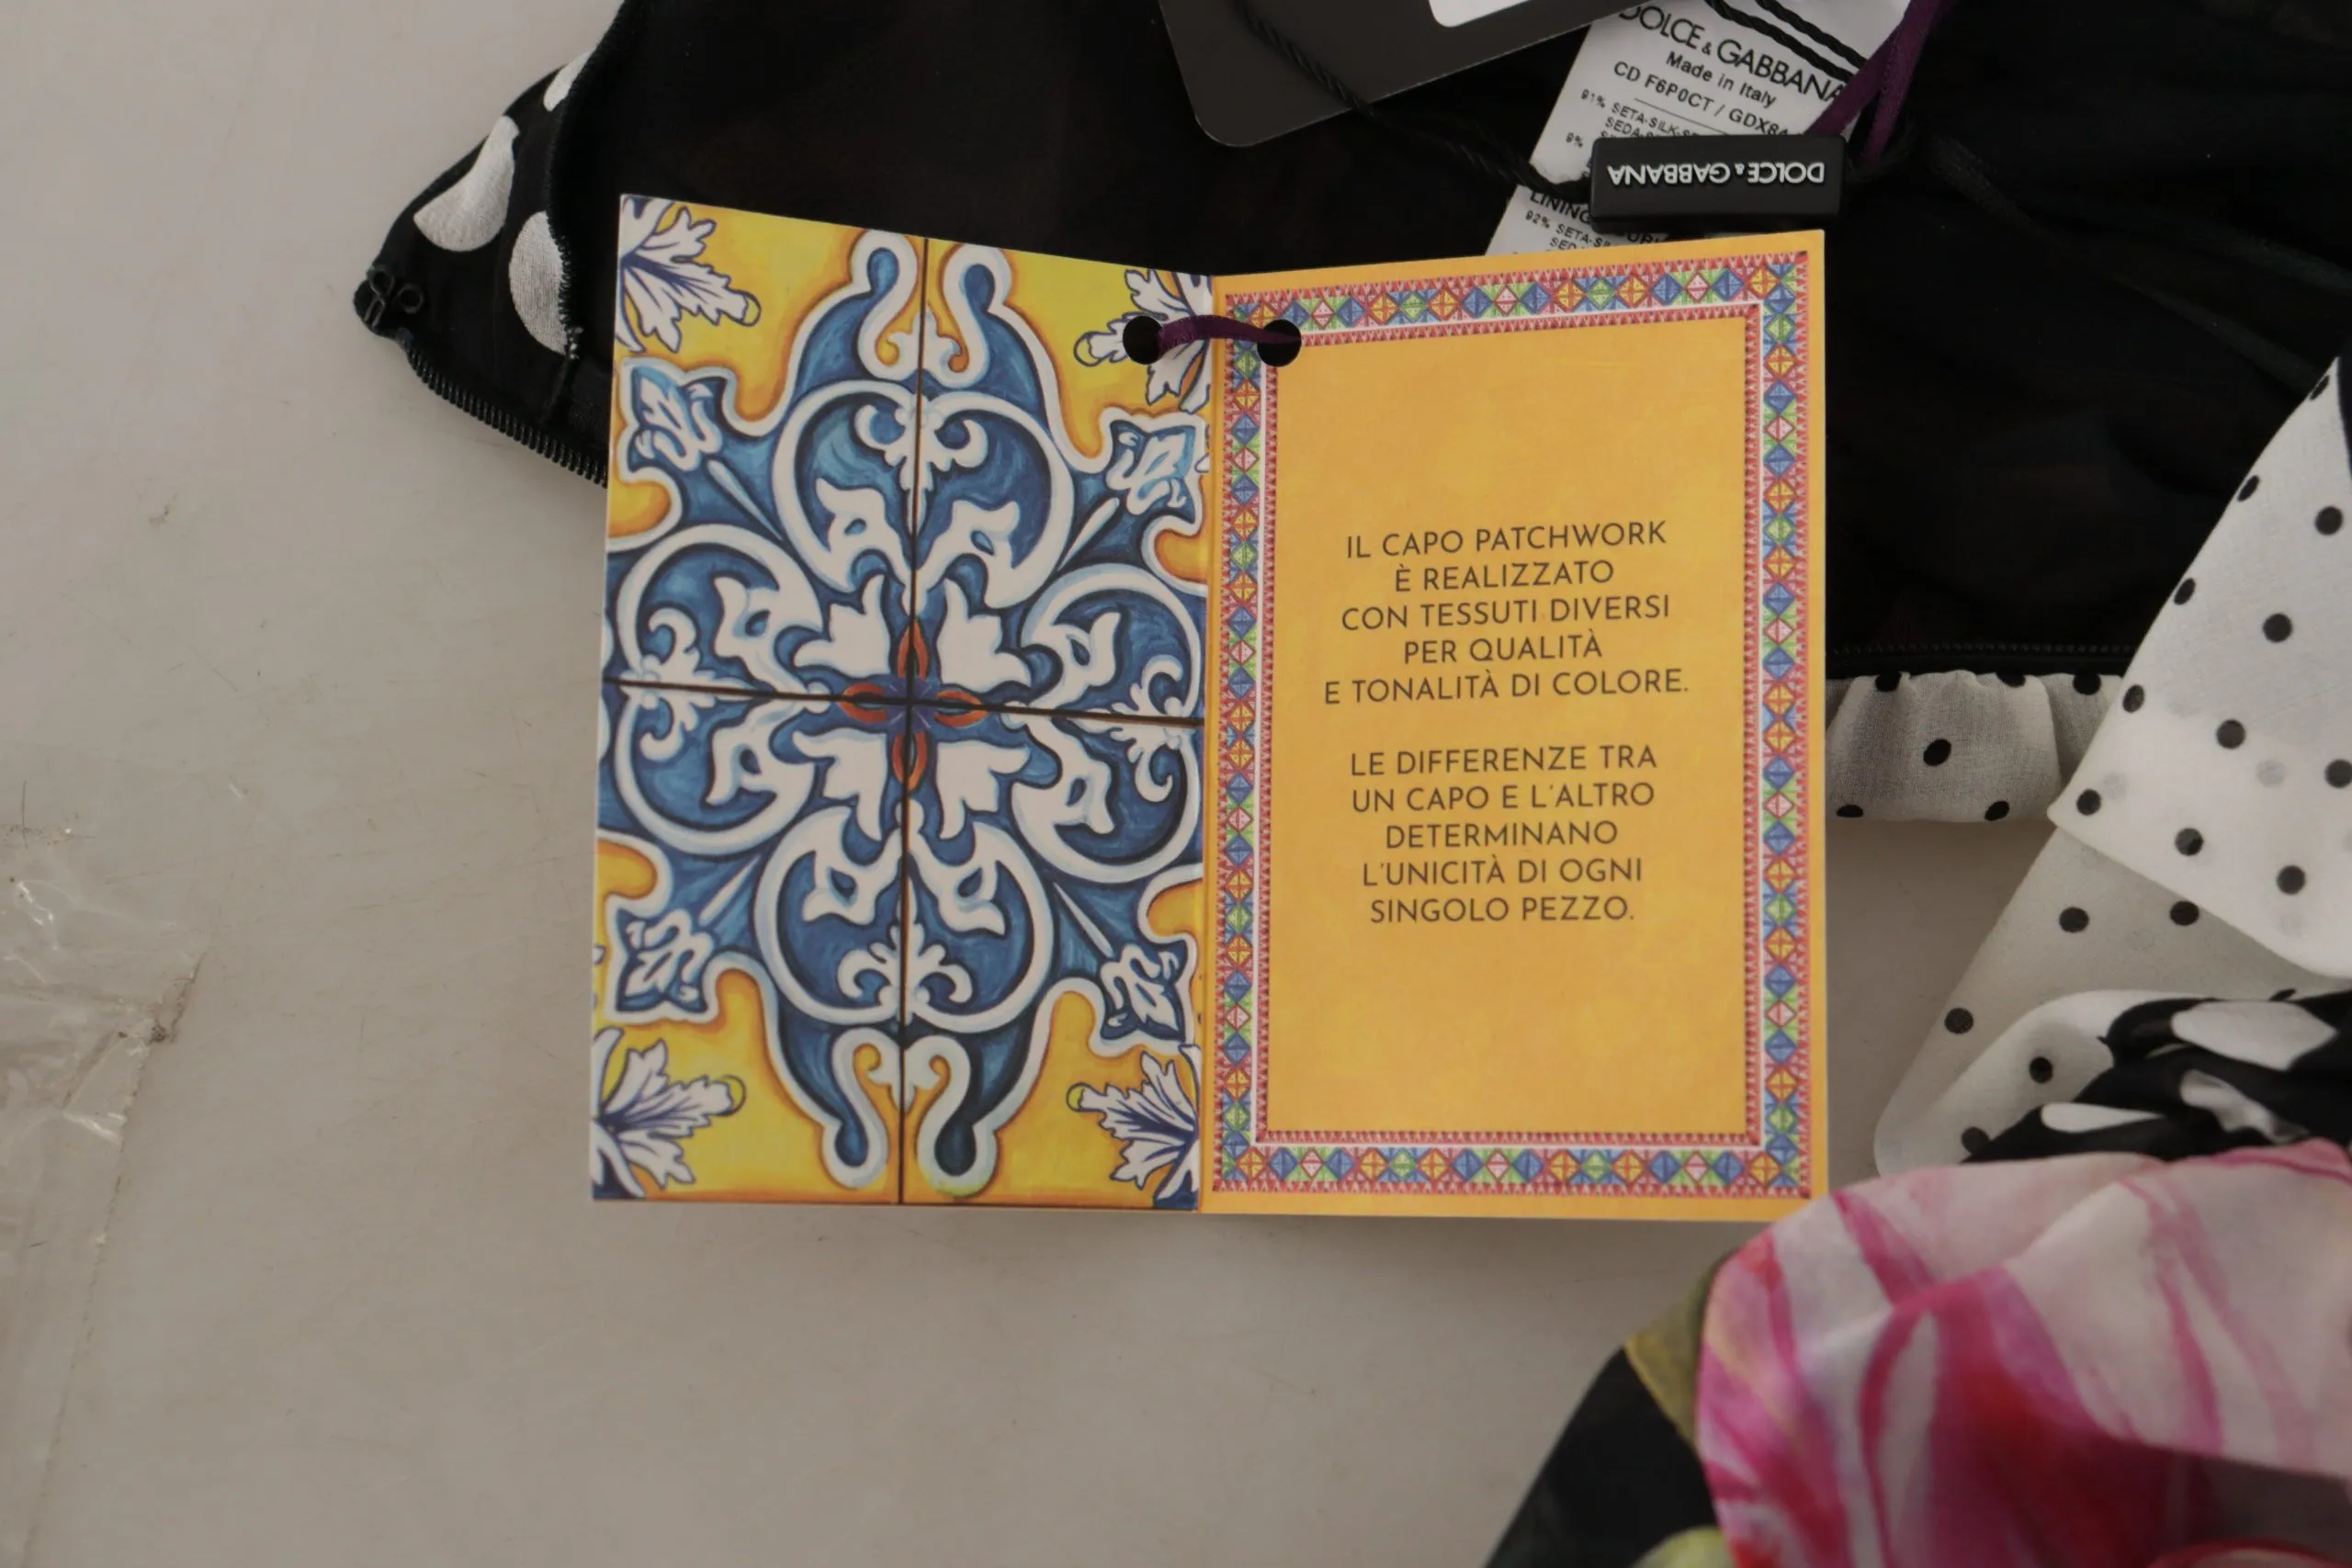 DOLCE & GABBANA
Made in Italy
CD F6P0CT / GDX8
91% SETA-SILK-S
SEDA
9%
DOLCE & GABBANA
LINING
92% SETA-S
SED
IL CAPO PATCHWORK
È REALIZZATO
CON TESSUTI DIVERSI
PER QUALITÀ
E TONALITÀ DI COLORE.
LE DIFFERENZE TRA
UN CAPO E L'ALTRO
DETERMINANO
L'UNICITÀ DI OGNI
SINGOLO PEZZO.